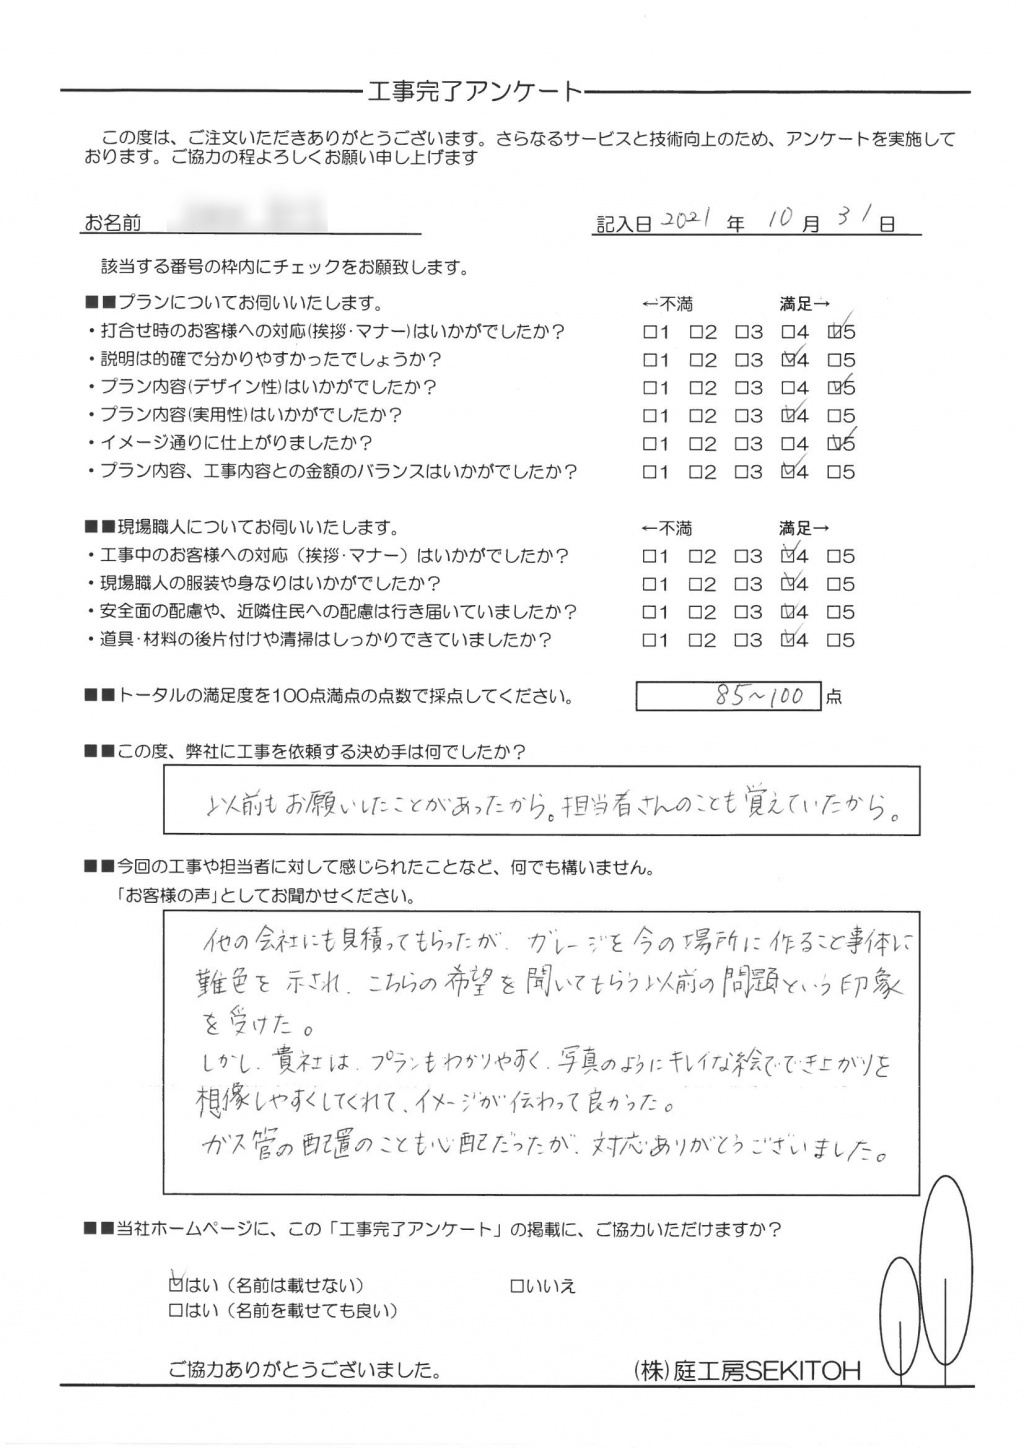 工事完了アンケート
この度は、ご注文いただきありがとうございます。さらなるサービスと技術向上のため、アンケートを実施して
おります。ご協力の程よろしくお願い申し上げます
お名前 記入日 2021 年 10 月 31 日
該当する番号の枠内にチェックをお願致します。
■■プランについてお伺いいたします。 ←不満 満足→
・打合せ時のお客様への対応(挨拶・マナー)はいかがでしたか? □1 □2 □3 □4 ☑5
・説明は的確で分かりやすかったでしょうか? □1 □2 □3 ☑4 □5
・プラン内容(デザイン性)はいかがでしたか? □1 □2 □3 □4 ☑5
・プラン内容(実用性)はいかがでしたか? □1 □2 □3 ☑4 □5
・イメージ通りに仕上がりましたか? □1 □2 □3 □4 ☑5
・プラン内容、工事内容との金額のバランスはいかがでしたか? □1 □2 □3 ☑4 □5
■■現場職人についてお伺いいたします。 ←不満 満足→
・工事中のお客様への対応（挨拶・マナー）はいかがでしたか? □1 □2 □3 ☑4 □5
・現場職人の服装や身なりはいかがでしたか? □1 □2 □3 ☑4 □5
・安全面の配慮や、近隣住民への配慮は行き届いていましたか? □1 □2 □3 ☑4 □5
・道具・材料の後片付けや清掃はしっかりできていましたか? □1 □2 □3 ☑4 □5
■■トータルの満足度を100点満点の点数で採点してください。 85~100 点
■■この度、弊社に工事を依頼する決め手は何でしたか?
以前もお願いしたことがあったから。担当者さんのことも覚えていたから。
■■今回の工事や担当者に対して感じられたことなど、何でも構いません。
「お客様の声」としてお聞かせください。
他の会社にも見積ってもらったが、ガレージを今の場所に作ること事体に
難色を示され、こちらの希望を聞いてもらう以前の問題という印象
を受けた。
しかし、貴社は、プランもわかりやすく、写真のようにキレイな絵ででき上がりを
想像しやすくしてくれて、イメージが伝わって良かった。
ガス管の配置のことも心配だったが、対応ありがとうございました。
■■当社ホームページに、この「工事完了アンケート」の掲載に、ご協力いただけますか?
☑はい（名前は載せない） □いいえ
□はい（名前を載せても良い）
ご協力ありがとうございました。 (株)庭工房SEKITOH